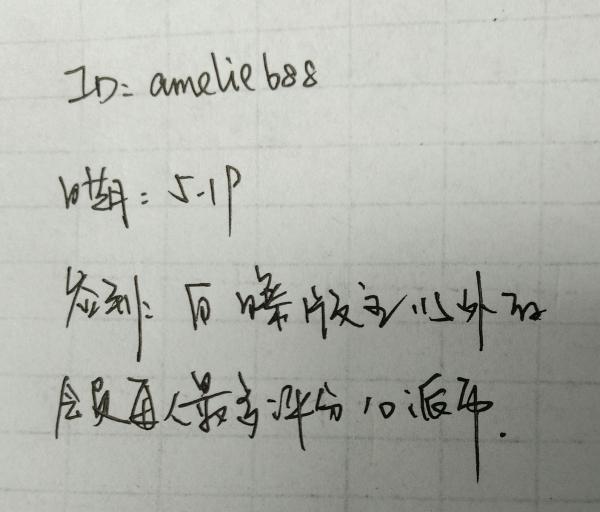 ID: amelie688
日期: 5.19
签到: 版主以外的
会员每人最多评分10派币.